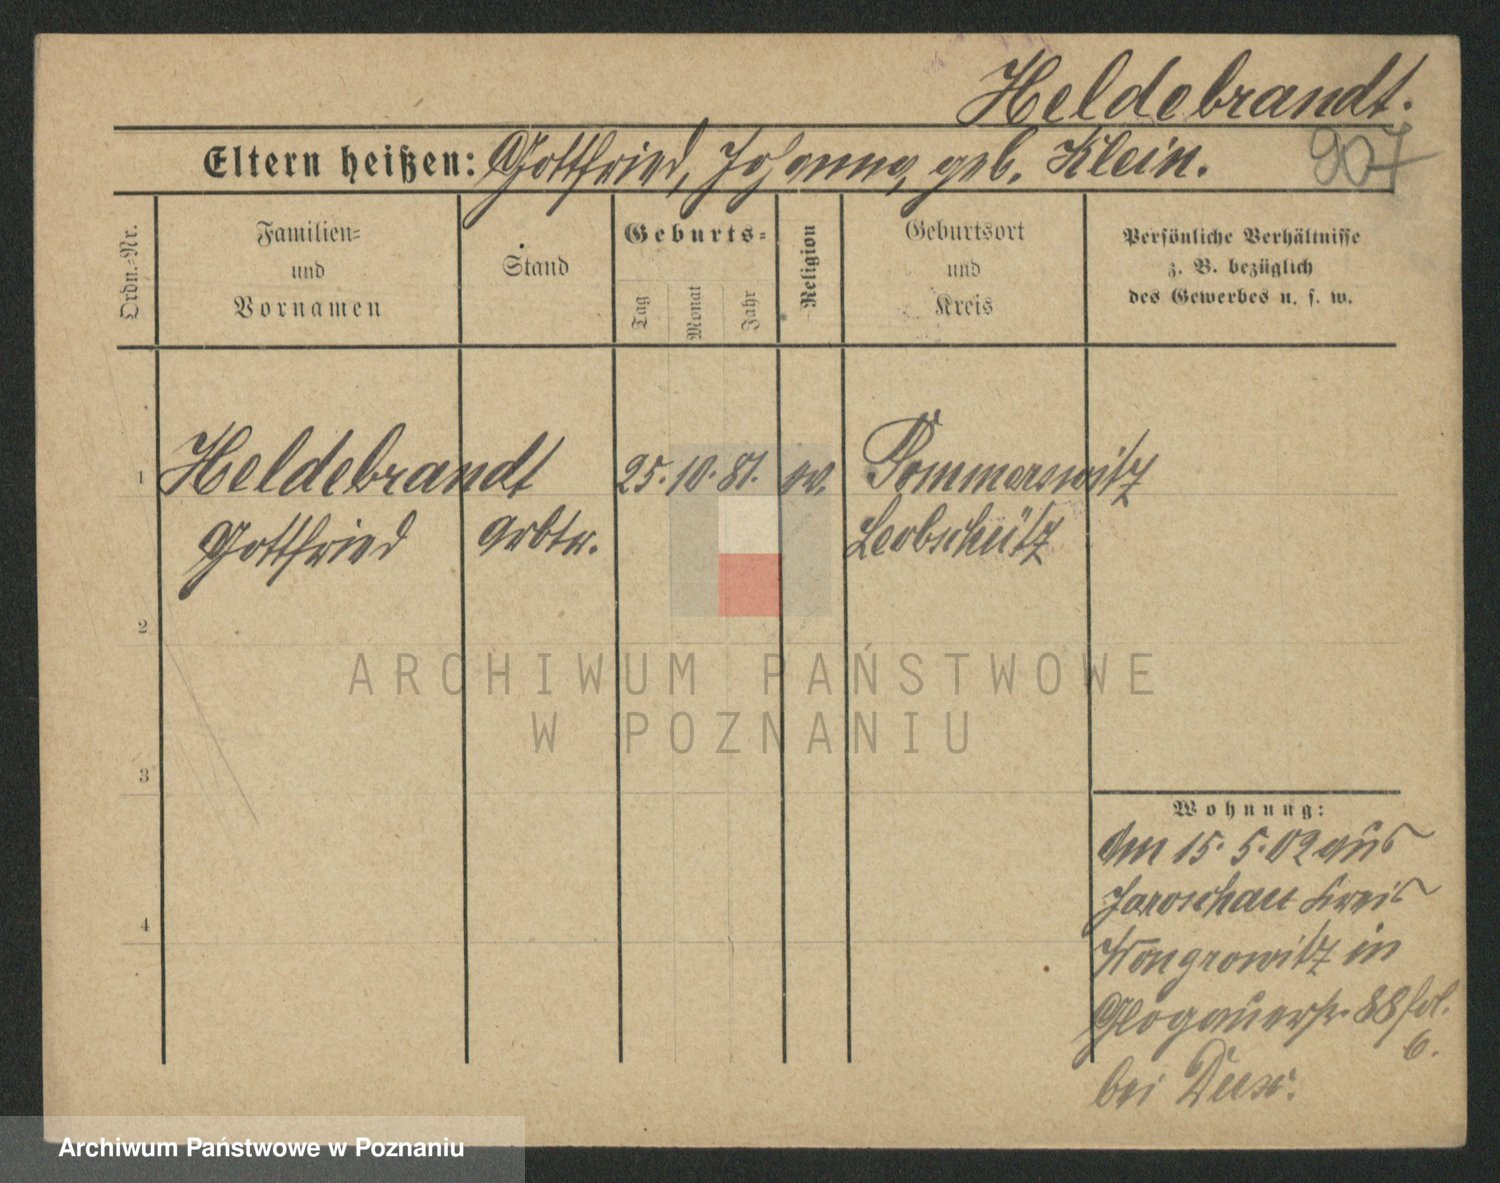 Heldebrandt.
Eltern heißen: Gottfried, Johanna, geb. Klein.
907
Ordn.-Nr.
Familien-
und
Vornamen
Stand
Geburts-
Tag
Monat
Jahr
Religion
Geburtsort
und
Kreis
Persönliche Verhältnisse
z. B. bezüglich
des Gewerbes u. s. w.
1
Heldebrandt
25. 10. 81. ev.
Pommerswitz
Gottfried
Arbtr.
Leobschütz
2
ARCHIWUM PAŃSTWOWE
W POZNANIU
3
Wohnung:
Am 15. 5. 02 aus
Jaroschau Kreis
4
Wongrowitz in
Glogauerstr. 88
6.
bei
Archiwum Państwowe w Poznaniu